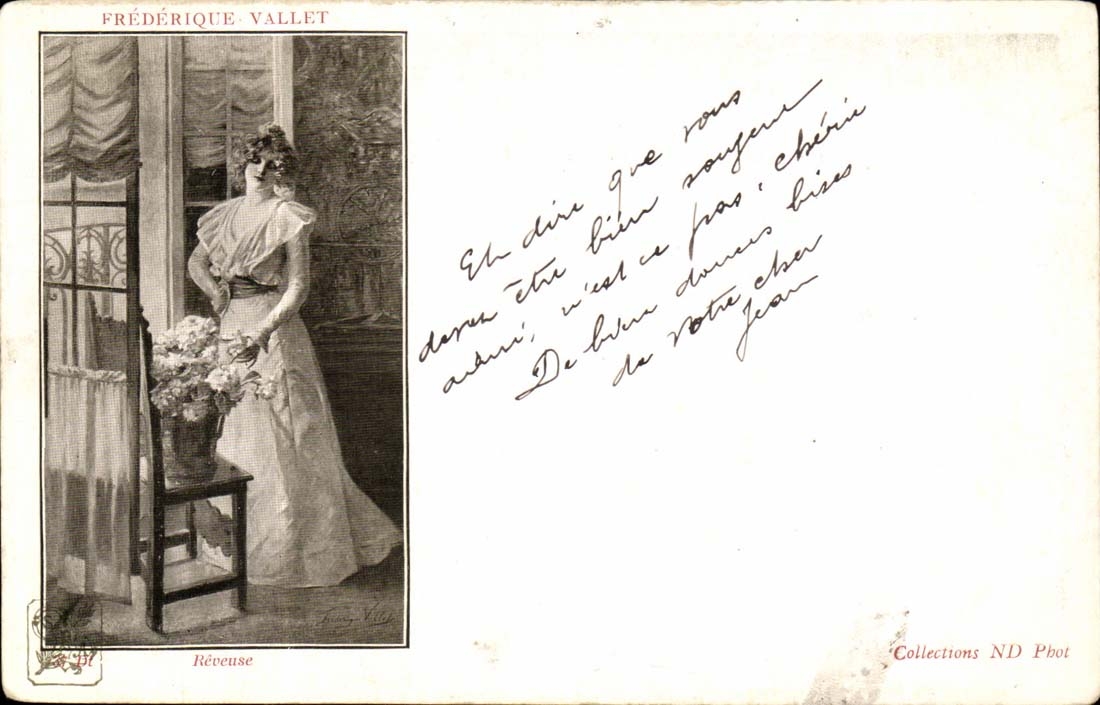 FRÉDÉRIQUE VALLET
Et dire que vous
devez être bien songeuse
aussi, n'est ce pas, chérie
De bien douces bises
de votre cher
Jean
Frédérique Vallet
Rêveuse
Collections ND Phot